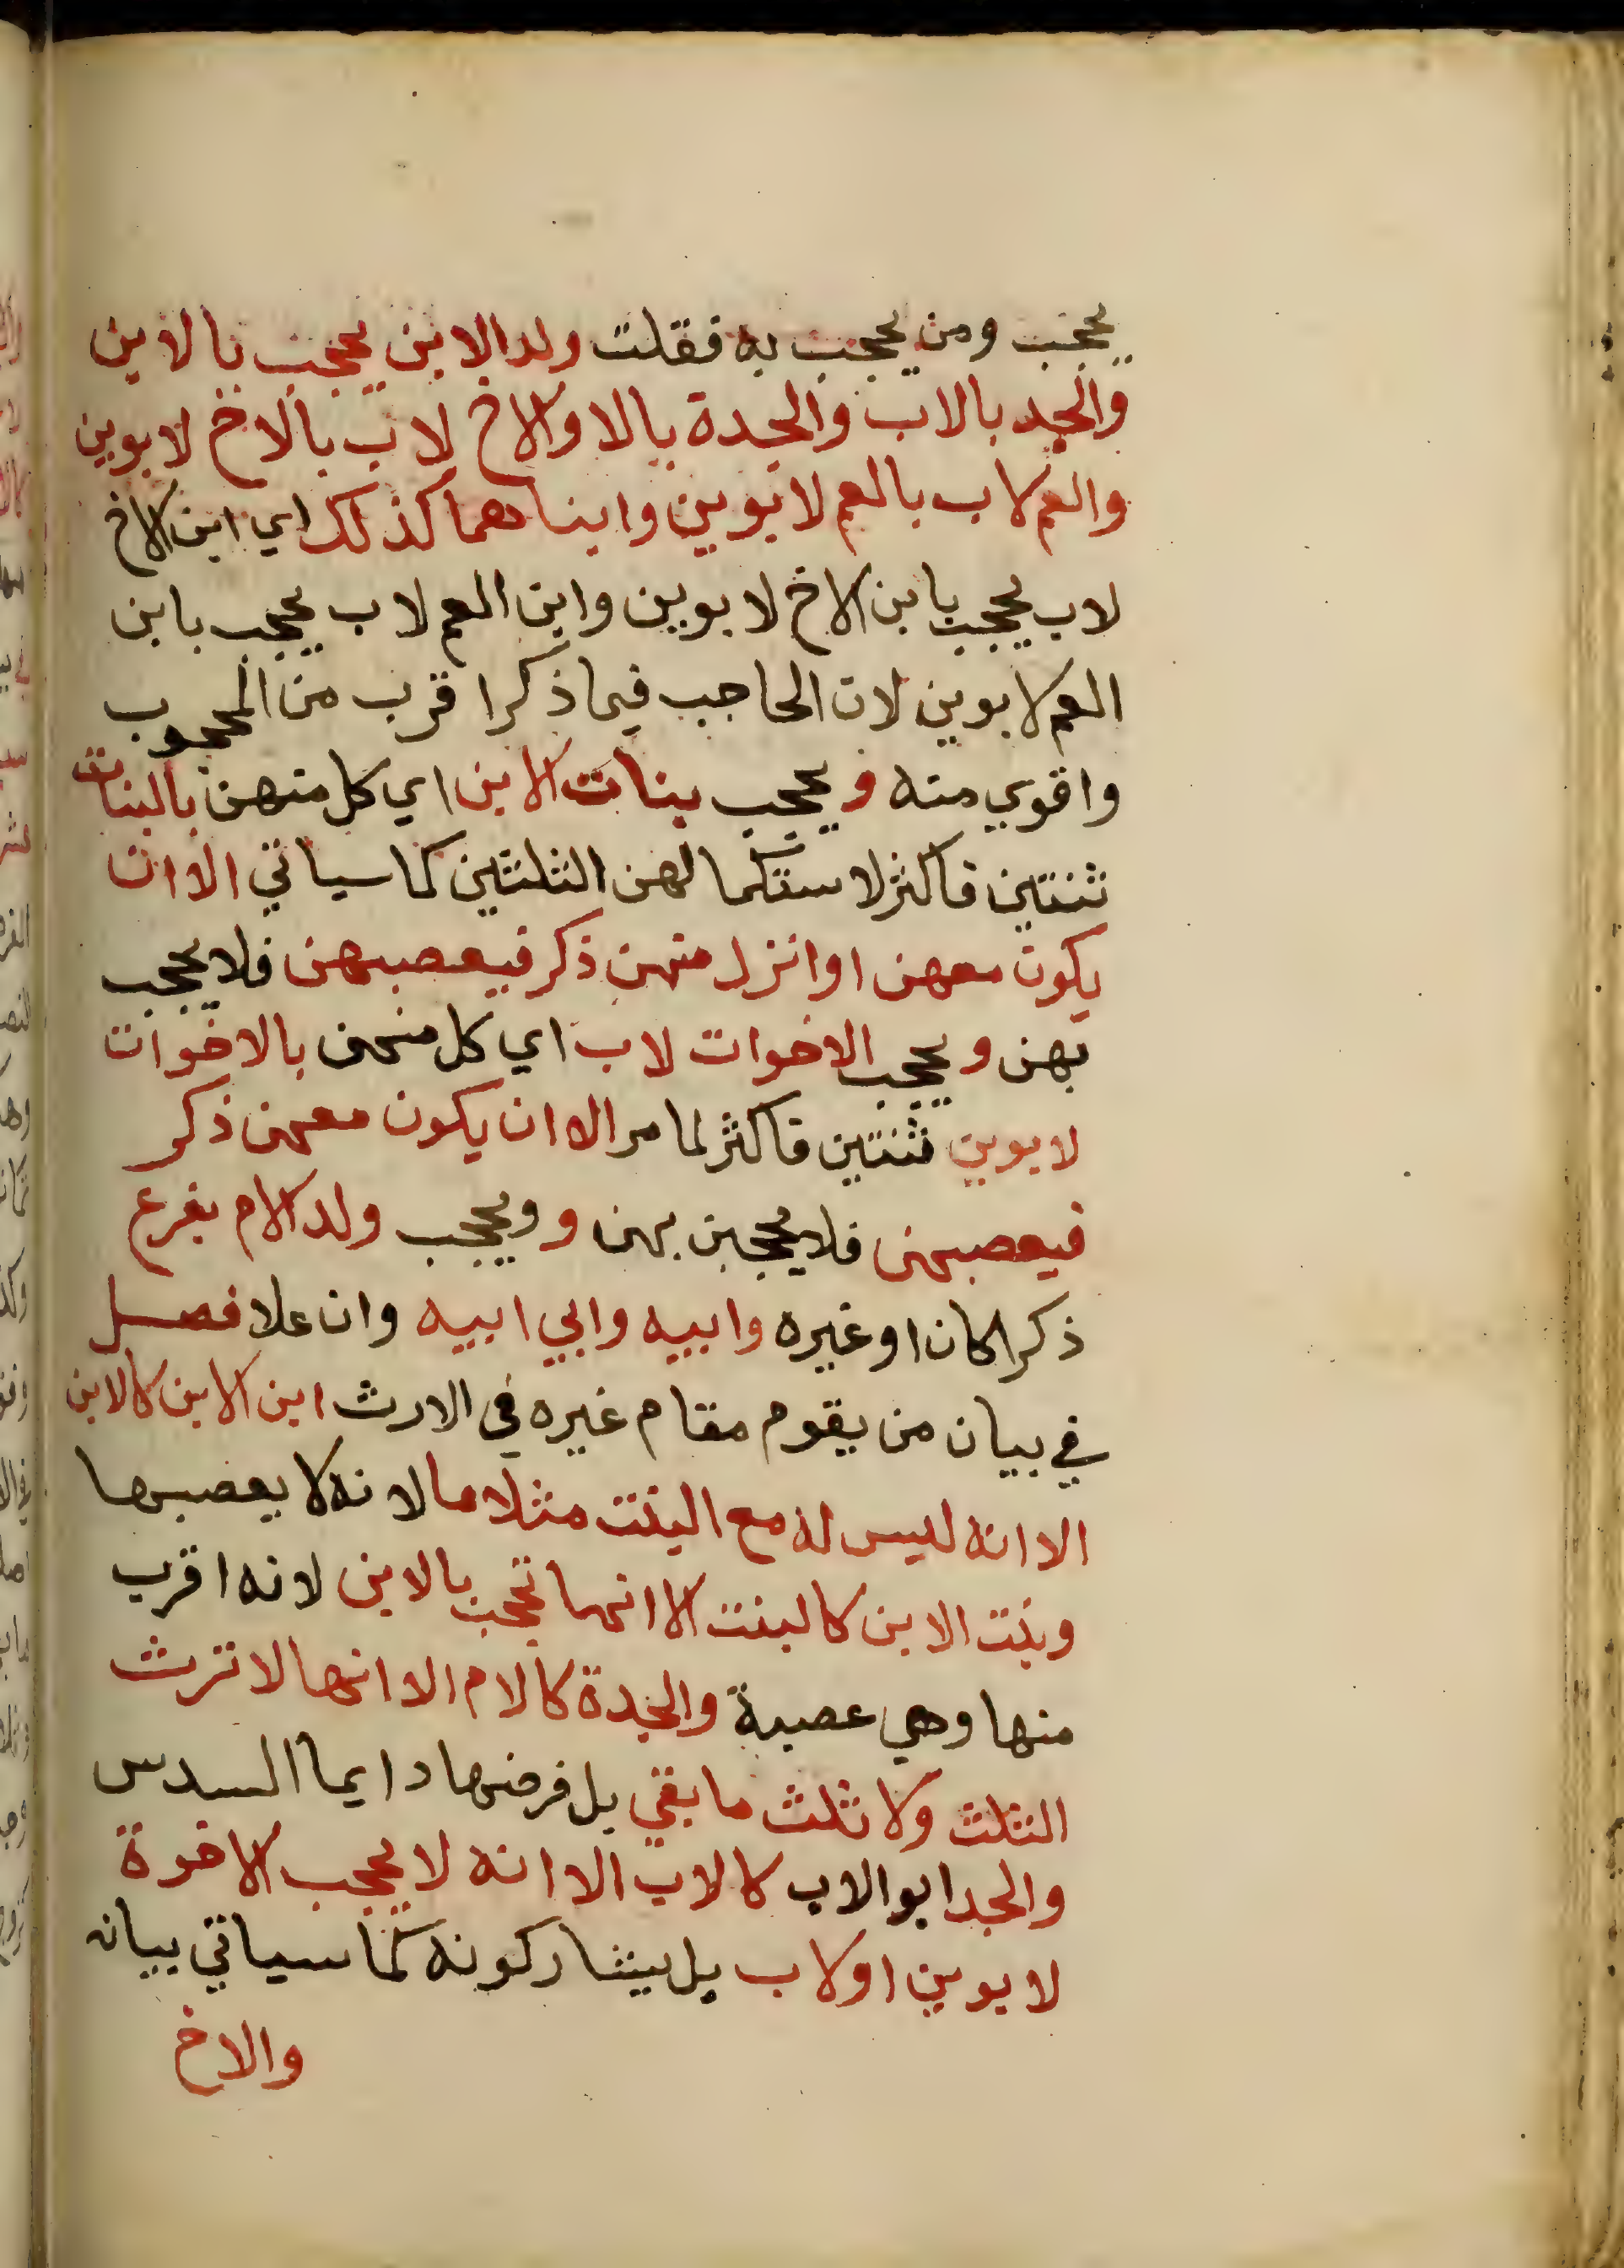 يحجب ومن يحجب به فقلت ولد الابن يحجب بالابن
والجد بالاب والجدة بالا والاخ لاب بالاخ لابوين
والعم لاب بالعم لابوين وابناهما كذلك اي ابن الاخ
لاب يحجب بابن الاخ لابوين وابن العم لاب يحجب بابن
العم لابوين لان الحاجب فيما ذكر اقرب من المحجوب
واقوي منه و يحجب بنات الابن اي كل منهن بالبنات
ثنتين فاكثر لاستكمالهن الثلثين كما سياتي الا ان
يكون معهن او انزل منهن ذكر فيعصبهن فلا يحجب
بهن و يحجب الاخوات لاب اي كل منهن بالاخوات
لابوين ثنتين فاكثر لما مر الا ان يكون معهن ذكر
فيعصبهن فلا يحجبن بهن و ويحجب ولد الام بفرع
ذكرا كان او غيره وابيه وابي ابيه وان علا فصل
في بيان من يقوم مقام غيره في الارث ابن الابن كالابن
الا انه ليس له مع البنت مثلاها لانه لا يعصبها
وبنت الابن كالبنت الا انها تحجب بالابن لانه اقرب
منها وهي عصبة والجدة كالام الا انها لا ترث
الثلث ولا ثلث ما بقي بل فرضها دايما السدس
والجد ابو الاب كالاب الا انه لا يحجب الاخوة
لابوين او لاب بل يشاركونه كما سياتي بيانه
والاخ